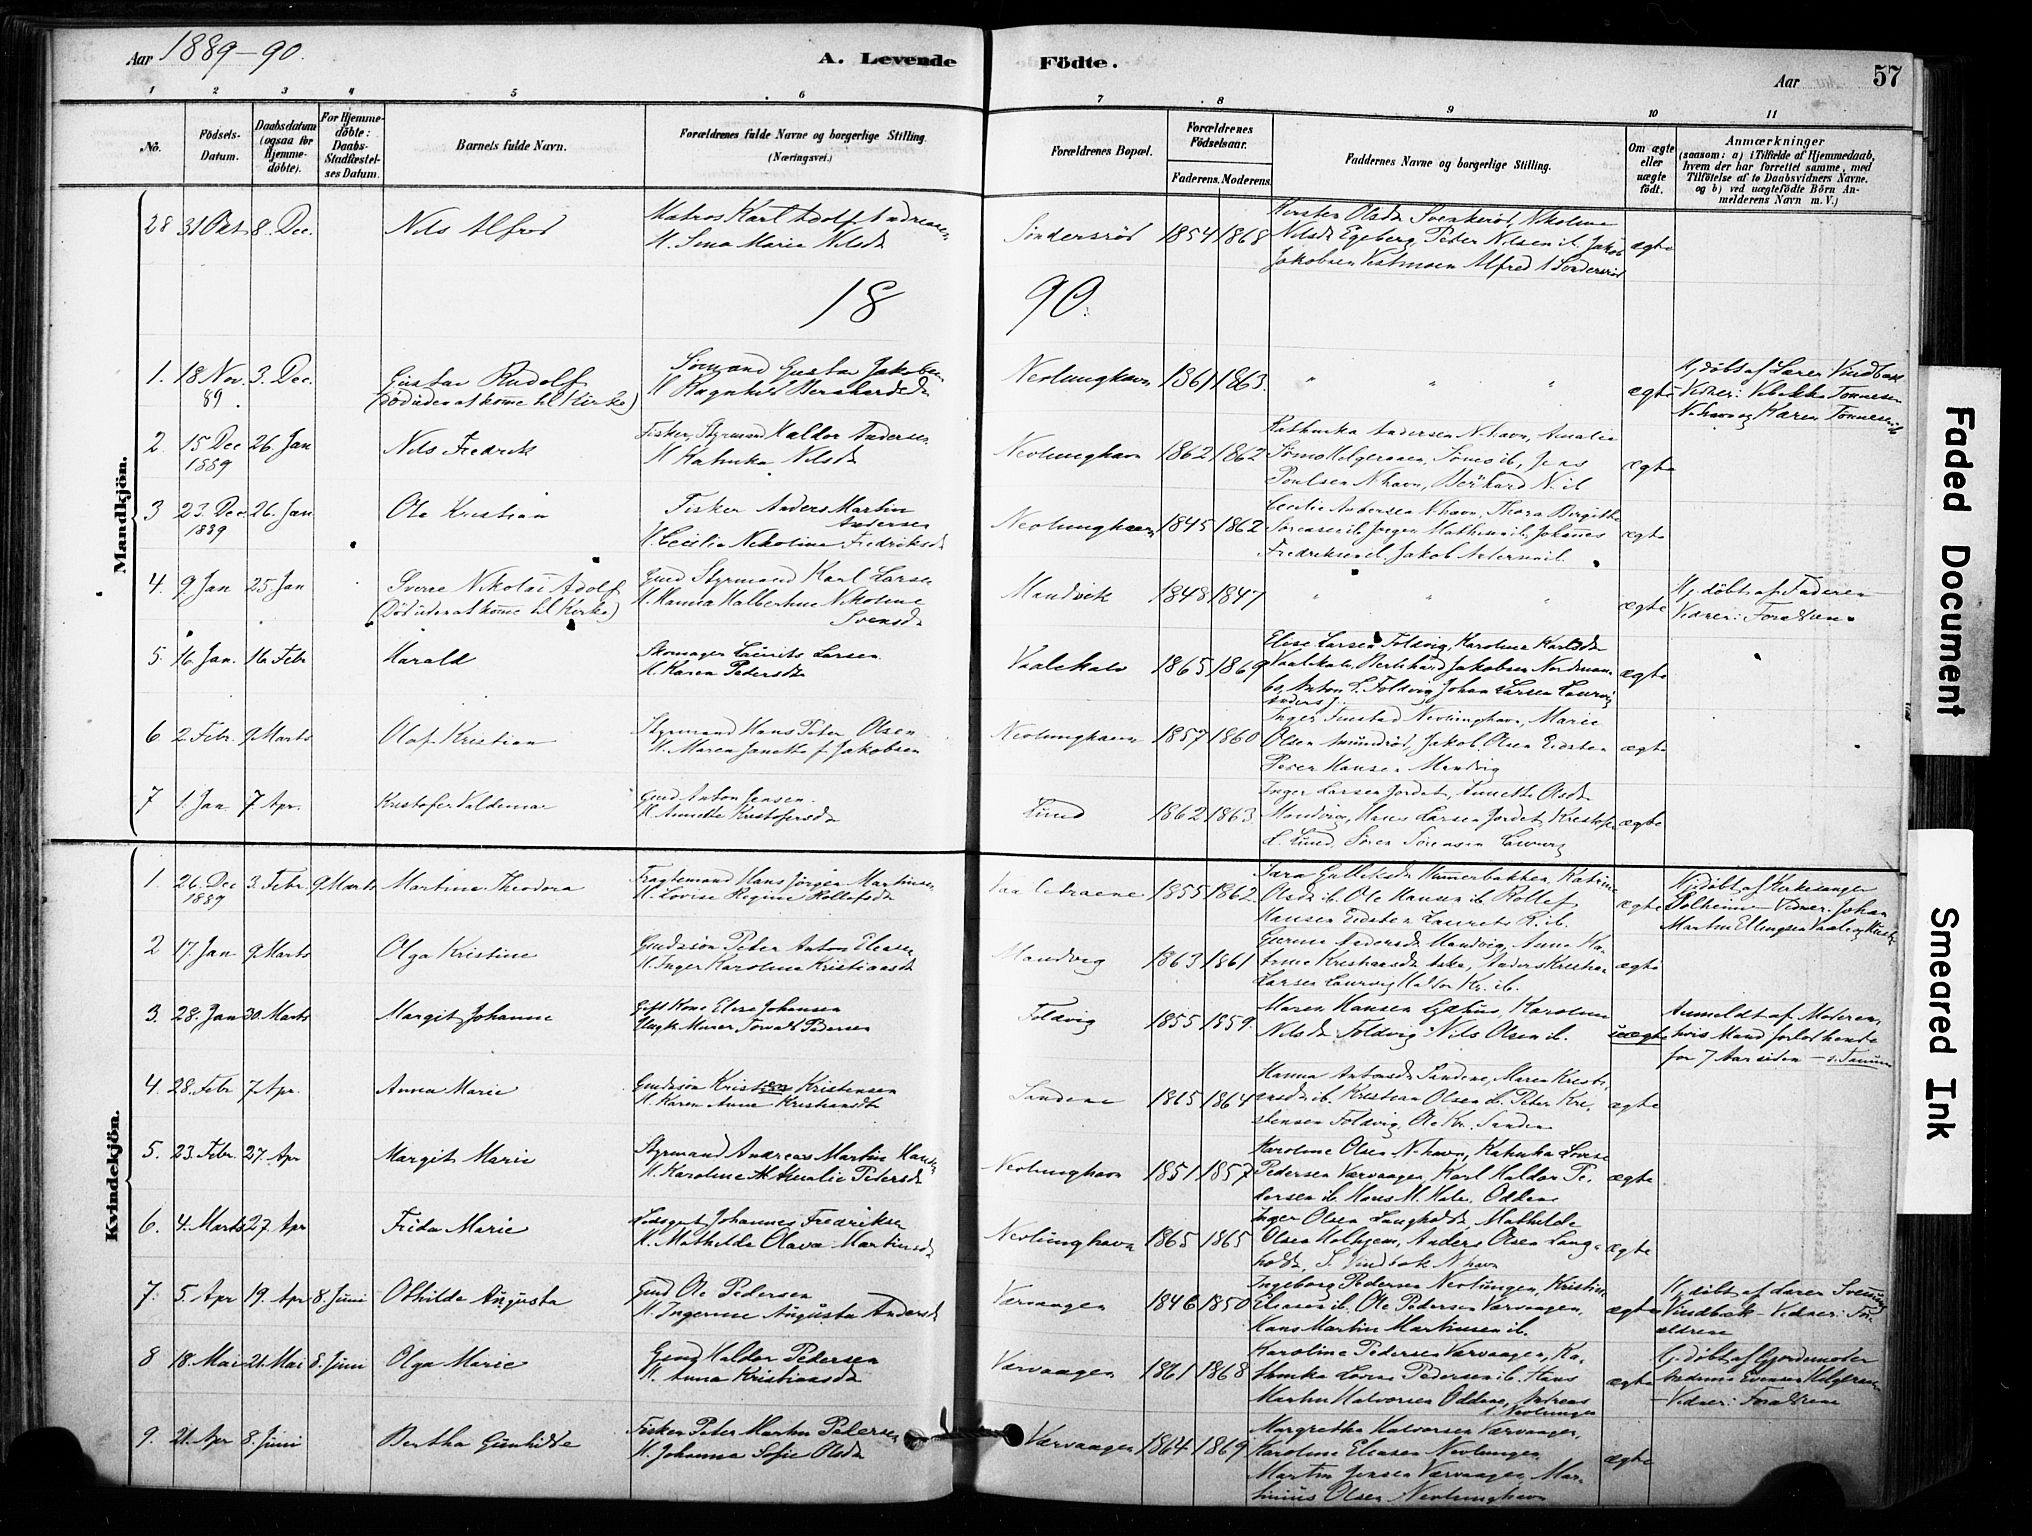 Aar 1889-90.
A. Levende Födte.
Aar
57
1 2 3 4 5 6 7 8 9 10 11
No.
Födsels-Datum.
Daabsdatum (ogsaa for Hjemme-döbte).
For Hjemme-döbte: Daabs-Stadfæstel-ses Datum.
Barnets fulde Navn.
Forældrenes fulde Navne og borgerlige Stilling.
(Næringsvei.)
Forældrenes Bopæl.
Forældrenes Födselsaar.
Faderens. Moderens.
Faddernes Navne og borgerlige Stilling.
Om ægte eller uægte födt.
Anmærkninger
(saasom: a) i Tilfælde af Hjemmedaab,
hvem der har forrettet samme, med
Tilföielse af to Daabsvidners Navne.
og b) ved uægtefödte Börn An-
melderens Navn m. V.)
Mandkjön.
28 31 Okt 8. Dec. Nils Alfred
Matros Karl Adolf Andreasen
H. Lina Marie Nilsdt
Söndersröd 1854 1868
Nilsdt Egeberg, Peter Nilsen ib. Jakob
Jakobsen Vestmoen Alfred A Söndersröd
ægte
18 90.
1. 18 Nov. 89. 3. Dec. Gustav Rudolf
(Död uden at komme til Kirke)
Sömand Gustav Jakobsen
H. Ragnhild Bernhardsdt
Nevlunghavn 1861 1863. " " " ægte
Hj. döbt af Lærer Vindbæk
Vidner: Vibekke Tönnesen
N.havn og Karen Tönnesen ib
2 15 Dec 1889 26 Jan Nils Fredrik
Fisker, Styrmand Haldor Andersen
H Kathinka Nilsdt
Nevlunghavn 1862 1862
Kathinka Andersen N.havn, Amalie
Poulsen N.havn, Bernhard N. ib
ægte
3 23. Dec. 1889 26. Jan Ole Kristian
Fisker Anders Martin
Andersen
H. Cecilie Nikoline Fredriksdt
Nevlunghavn 1845 1862
Cecilie Andersen N.havn, Thora Birgithe
Sörensen ib. Jörger Mathisen ib, Johannes
Fredriksen ib. Jakob Andersen ib.
ægte
4. 9. Jan 25 Jan Sverre Nikolai Adolf
(Död uden at komme til Kirke)
Gmd Styrmand Karl Larsen
H. Hanna Halberhine Nikoline
Svensdt
Mandvik 1848 1847 " " " ægte
Hj. döbt af Faderen
Vidner: Forældrene
5. 16 Jan. 16 Febr Harald
Skomager Laurits Larsen.
H. Karen Pedersdt
Vaaleskala 1865 1869
Elise Larsen Foldvig, Karoline Karlsdt
Anton L. Foldvig, Johan Larsen Laurvig
ægte
6. 2. Febr. 9 Marts Olaf Kristian
Styrmand Hans Peter Olsen
H. Maren Janette f. Jakobsen
Nevlunghavn 1857 1860
Inger Nevlunghavn, Marie
Olsen Jakob Olsen Eidsten
Hansen Mandvig
ægte
7 1. Jan. 7. Apr. Kristofer Valdemar
Gmd Anton Jensen.
H. Annette Kristofersdt
Lund 1862 1863.
Inger Larsen Jordet, Annette Olsdt
Mandvig, Hans Larsen Jordet, Kristofer
L. Lund, Sören Sörensen Laurvig
ægte
Kvindekjön.
1. 26. Dec 1889 3. Febr. 9 Marts Martine Theodora
Fragtemand Hans Jörgen Martinsen
H. Lovise Regine Rollefsdt
1855 1862.
Olsdt ib. Ole Hansen ib Rollef
Hansen Eidsten Laurits R. ib.
ægte
Hj. döbt af Kirkesanger
Solheim - Vidner: Johan
Martin Ellingsen
2 17. Jan 9 Marts Olga Kristine
Gmdssön Peter Anton Eliasen
H. Inger Karoline Kristiansdt
Mandvig 1863 1861
Gurine Andersdt Mandvig, Anna Ka-
trine Kristiansdt Aske, Anders Kristian
Larsen Laurvig Haldor Kr. ib.
ægte
3. 28. Jan 30. Marts Margit Johanne
Gift Kone Elise Johansen
Ungk. Murer Torvald Pedersen
Foldvig 1855 1859.
Maren Hansen Karoline
Nilsdt Foldvig Nils Olsen ib.
uægte
Anmeldt af Moderen,
hvis Mand forlod hende
for 7 Aar siden
4. 28. Febr 7. Apr. Anna Marie
Gmdssön Kristen Kristensen
H. Karen Anne Kristiansdt
Sandene 1865 1864
Hanna Antonsdt Sandene, Maren Kristi-
ansdt ib. Kristian Olsen ib. Peter Kri-
stensen Foldvig, Ole Kr. Sandene
ægte
5. 23. Febr. 27. Apr Margit Marie
Styrmand Andreas Martin Hansen
H. Karoline Amalie Pedersdt
Nevlunghavn 1851 1857
Karoline Olsen N.havn, Kathinka Lovise
Pedersen Værvaagen, Karl Haldor Pe-
dersen ib. Hans M. Hals, Oddene
ægte
6. 4. Marts 27. Apr Frida Marie
Johannes Fredriksen
H. Mathilde Olava Martinsdt
Nevlunghavn 1865 1865
Inger Olsen Langholdt, Mathilde
Olsen Anders Olsen Lang-
holdt, S. Vindbæk N.havn
ægte
7. 5. Apr 19. Apr 8. Juni Othilde Augusta
Gmd Ole Pedersen
H Ingerine Augusta Andersdt
Værvaagen 1846 1850
Ingeborg Pedersen Nevlungen, Kristine
Eliasen ib. Ole Pedersen Værvaagen,
Hans Martin Martinsen ib.
ægte
Hj. döbt af Lærer
Vindbæk - Vidner: For-
ældrene
8 18. Mai 21. Mai 8. Juni Olga Marie
Gmd Haldor Pedersen
H. Anna Kristiansdt
Værvaagen 1861 1868
Karoline Pedersen Værvaagen, Ka-
thinka Lovise Pedersen ib. Hans
Martin Halvorsen Oddene, Andreas
Nevlungen
ægte
Hj. döbt af Gjordemoder
- Vidner: Forældrene
9. 21. Apr 8. Juni Bertha Gunhilde
Fisker Peter Martin Pedersen
H. Johanna Sofie Olsdt
Værvaagen 1864 1869
Margrethe Halvorsen Værvaagen,
Karoline Eliasen Nevlungen,
Martin Jensen Værvaagen, Mar-
tinius Olsen Nevlunghavn
ægte
Faded Document
Smeared Ink